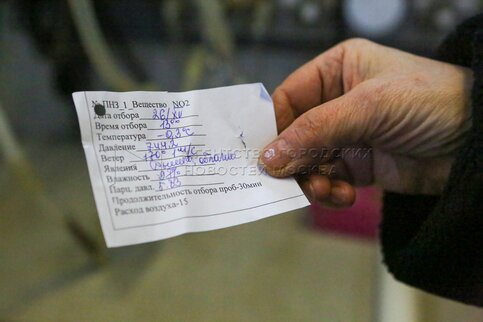 № ПНЗ_1_Вещество_NO2
Дата отбора 26/XII
Время отбора 13⁰⁰
Температура -0,3°С
Давление 744.2
Ветер 170° 1 м/с
Явления
Влажность
Парц. давл.
Продолжительность отбора проб-30мин
Расход воздуха-15
АГЕНТСТВО ГОРОДСКИХ
НОВОСТЕЙ МОСКВА